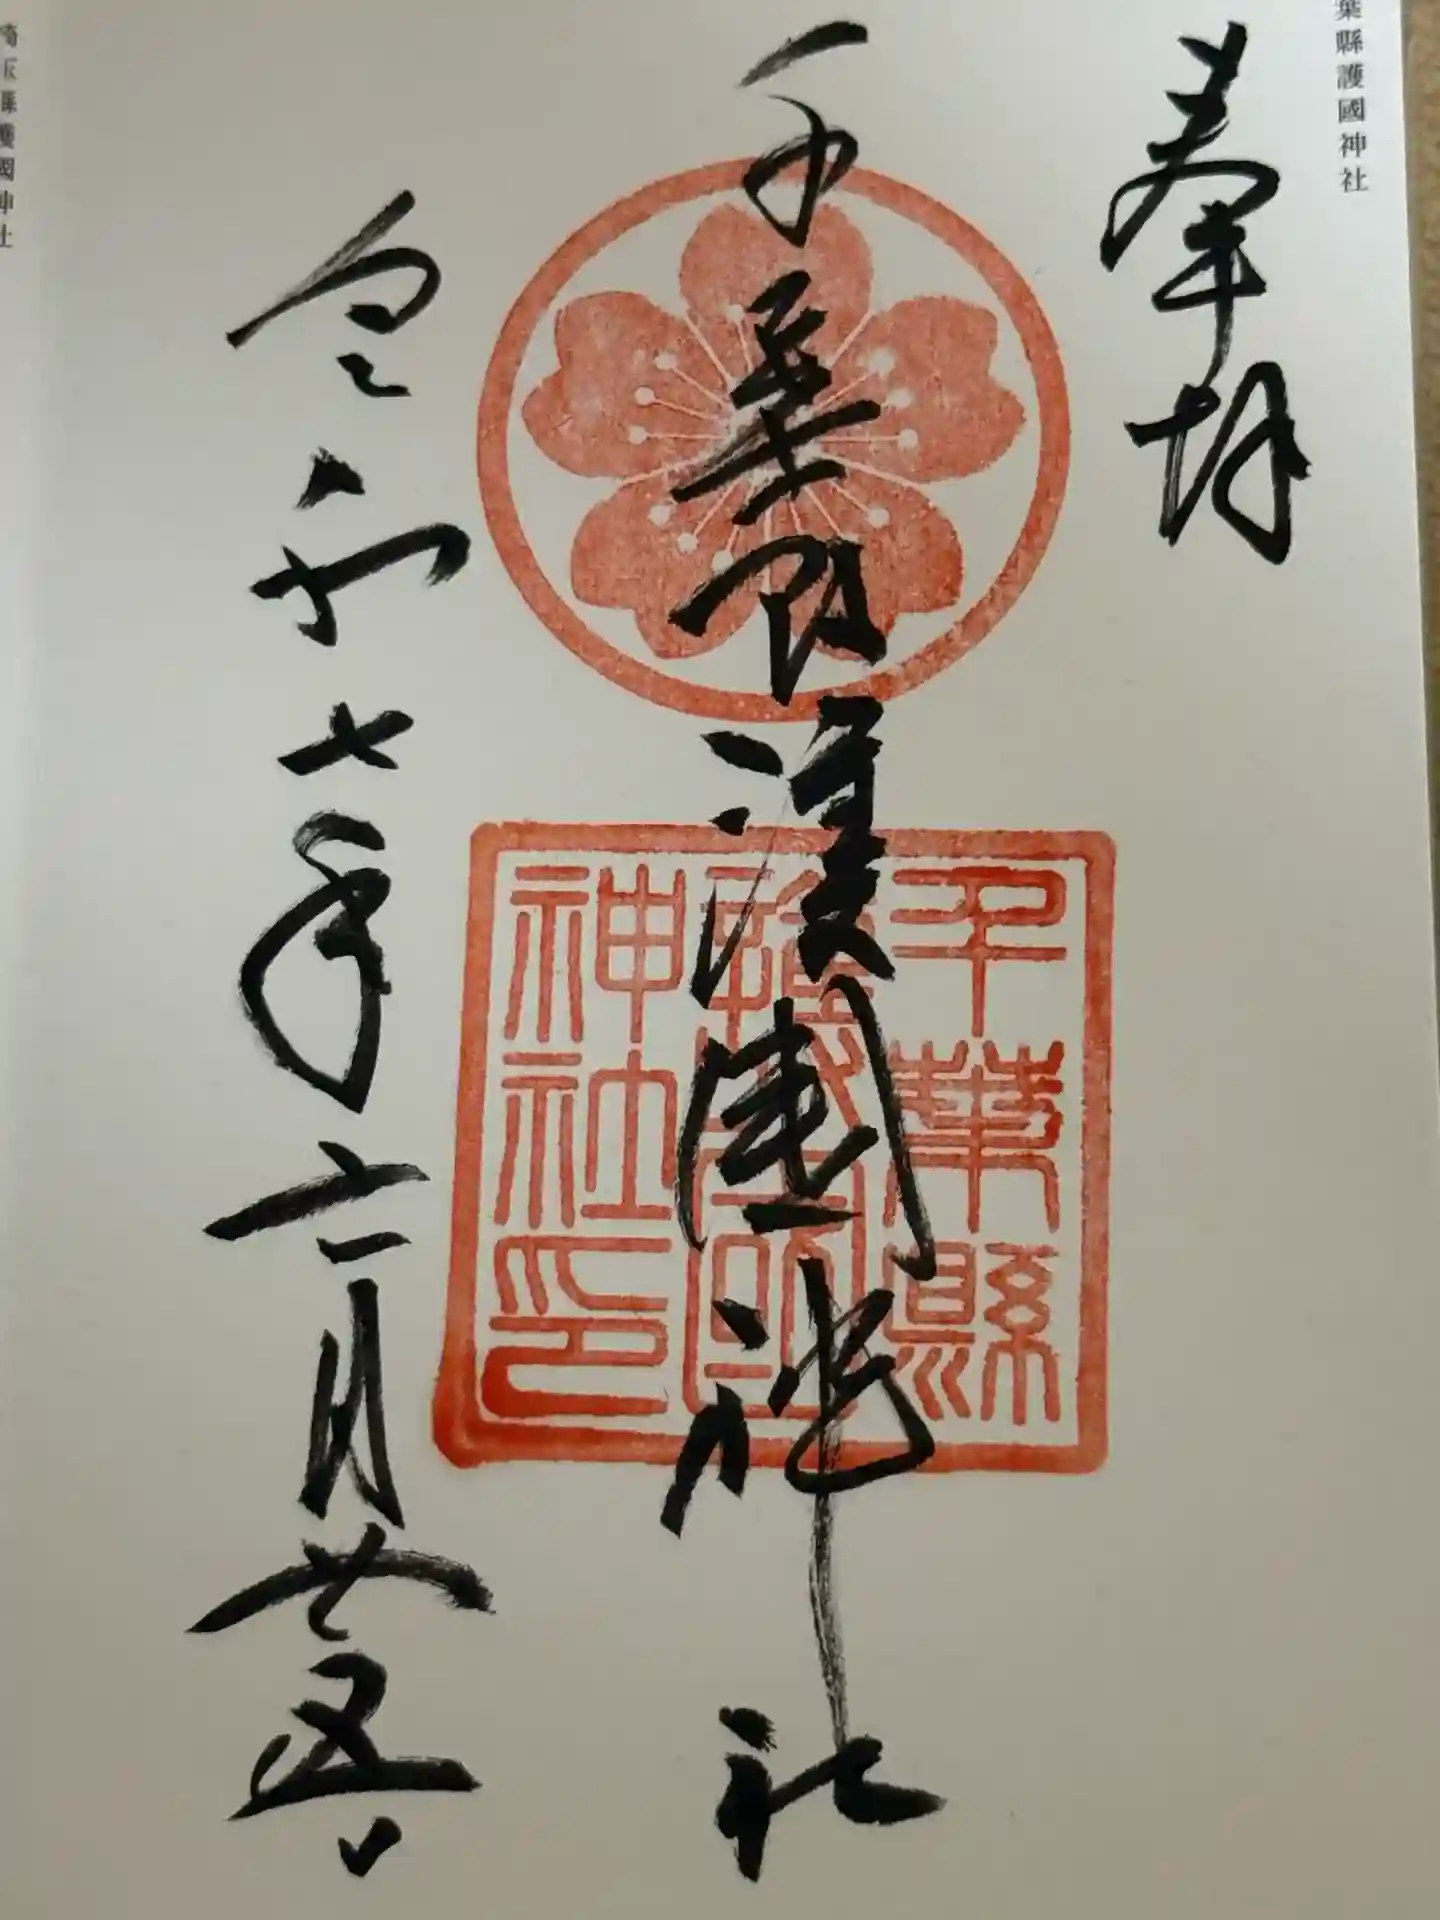 葉縣護國神社
奉拝
千葉縣護國神社
令和七年六月廿五日
千葉縣
護國
神社印
玉縣護國神社